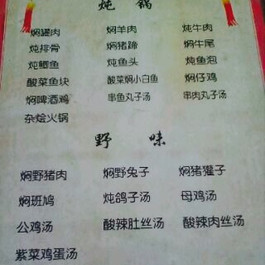 炖 锅
焖罐肉 焖羊肉 炖牛肉
炖排骨 焖猪蹄 焖牛尾
炖鲫鱼 炖鱼头 炖鱼泡
酸菜鱼块 酸菜焖小白鱼 焖仔鸡
焖啤酒鸡 串鱼丸子汤 串肉丸子汤
杂烩火锅
野 味
焖野猪肉 焖野兔子 焖猪獾子
焖斑鸠 炖鸽子汤 母鸡汤
公鸡汤 酸辣肚丝汤 酸辣肉丝汤
紫菜鸡蛋汤